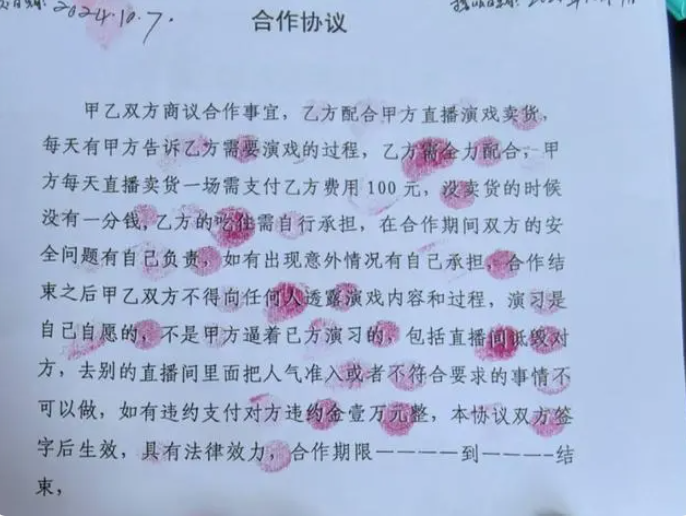 2024.10.7.
合作协议
甲乙双方商议合作事宜，乙方配合甲方直播演戏卖货，
每天有甲方告诉乙方需要演戏的过程，乙方需全力配合，甲
方每天直播卖货一场需支付乙方费用 100 元，没卖货的时候
没有一分钱，乙方的吃住需自行承担，在合作期间双方的安
全问题有自己负责，如有出现意外情况有自己承担，合作结
束之后甲乙双方不得向任何人透露演戏内容和过程，演习是
自己自愿的，不是甲方逼着己方演习的，包括直播间诋毁对
方，去别的直播间里面把人气准入或者不符合要求的事情不
可以做，如有违约支付对方违约金壹万元整，本协议双方签
字后生效，具有法律效力，合作期限————到————结
束，